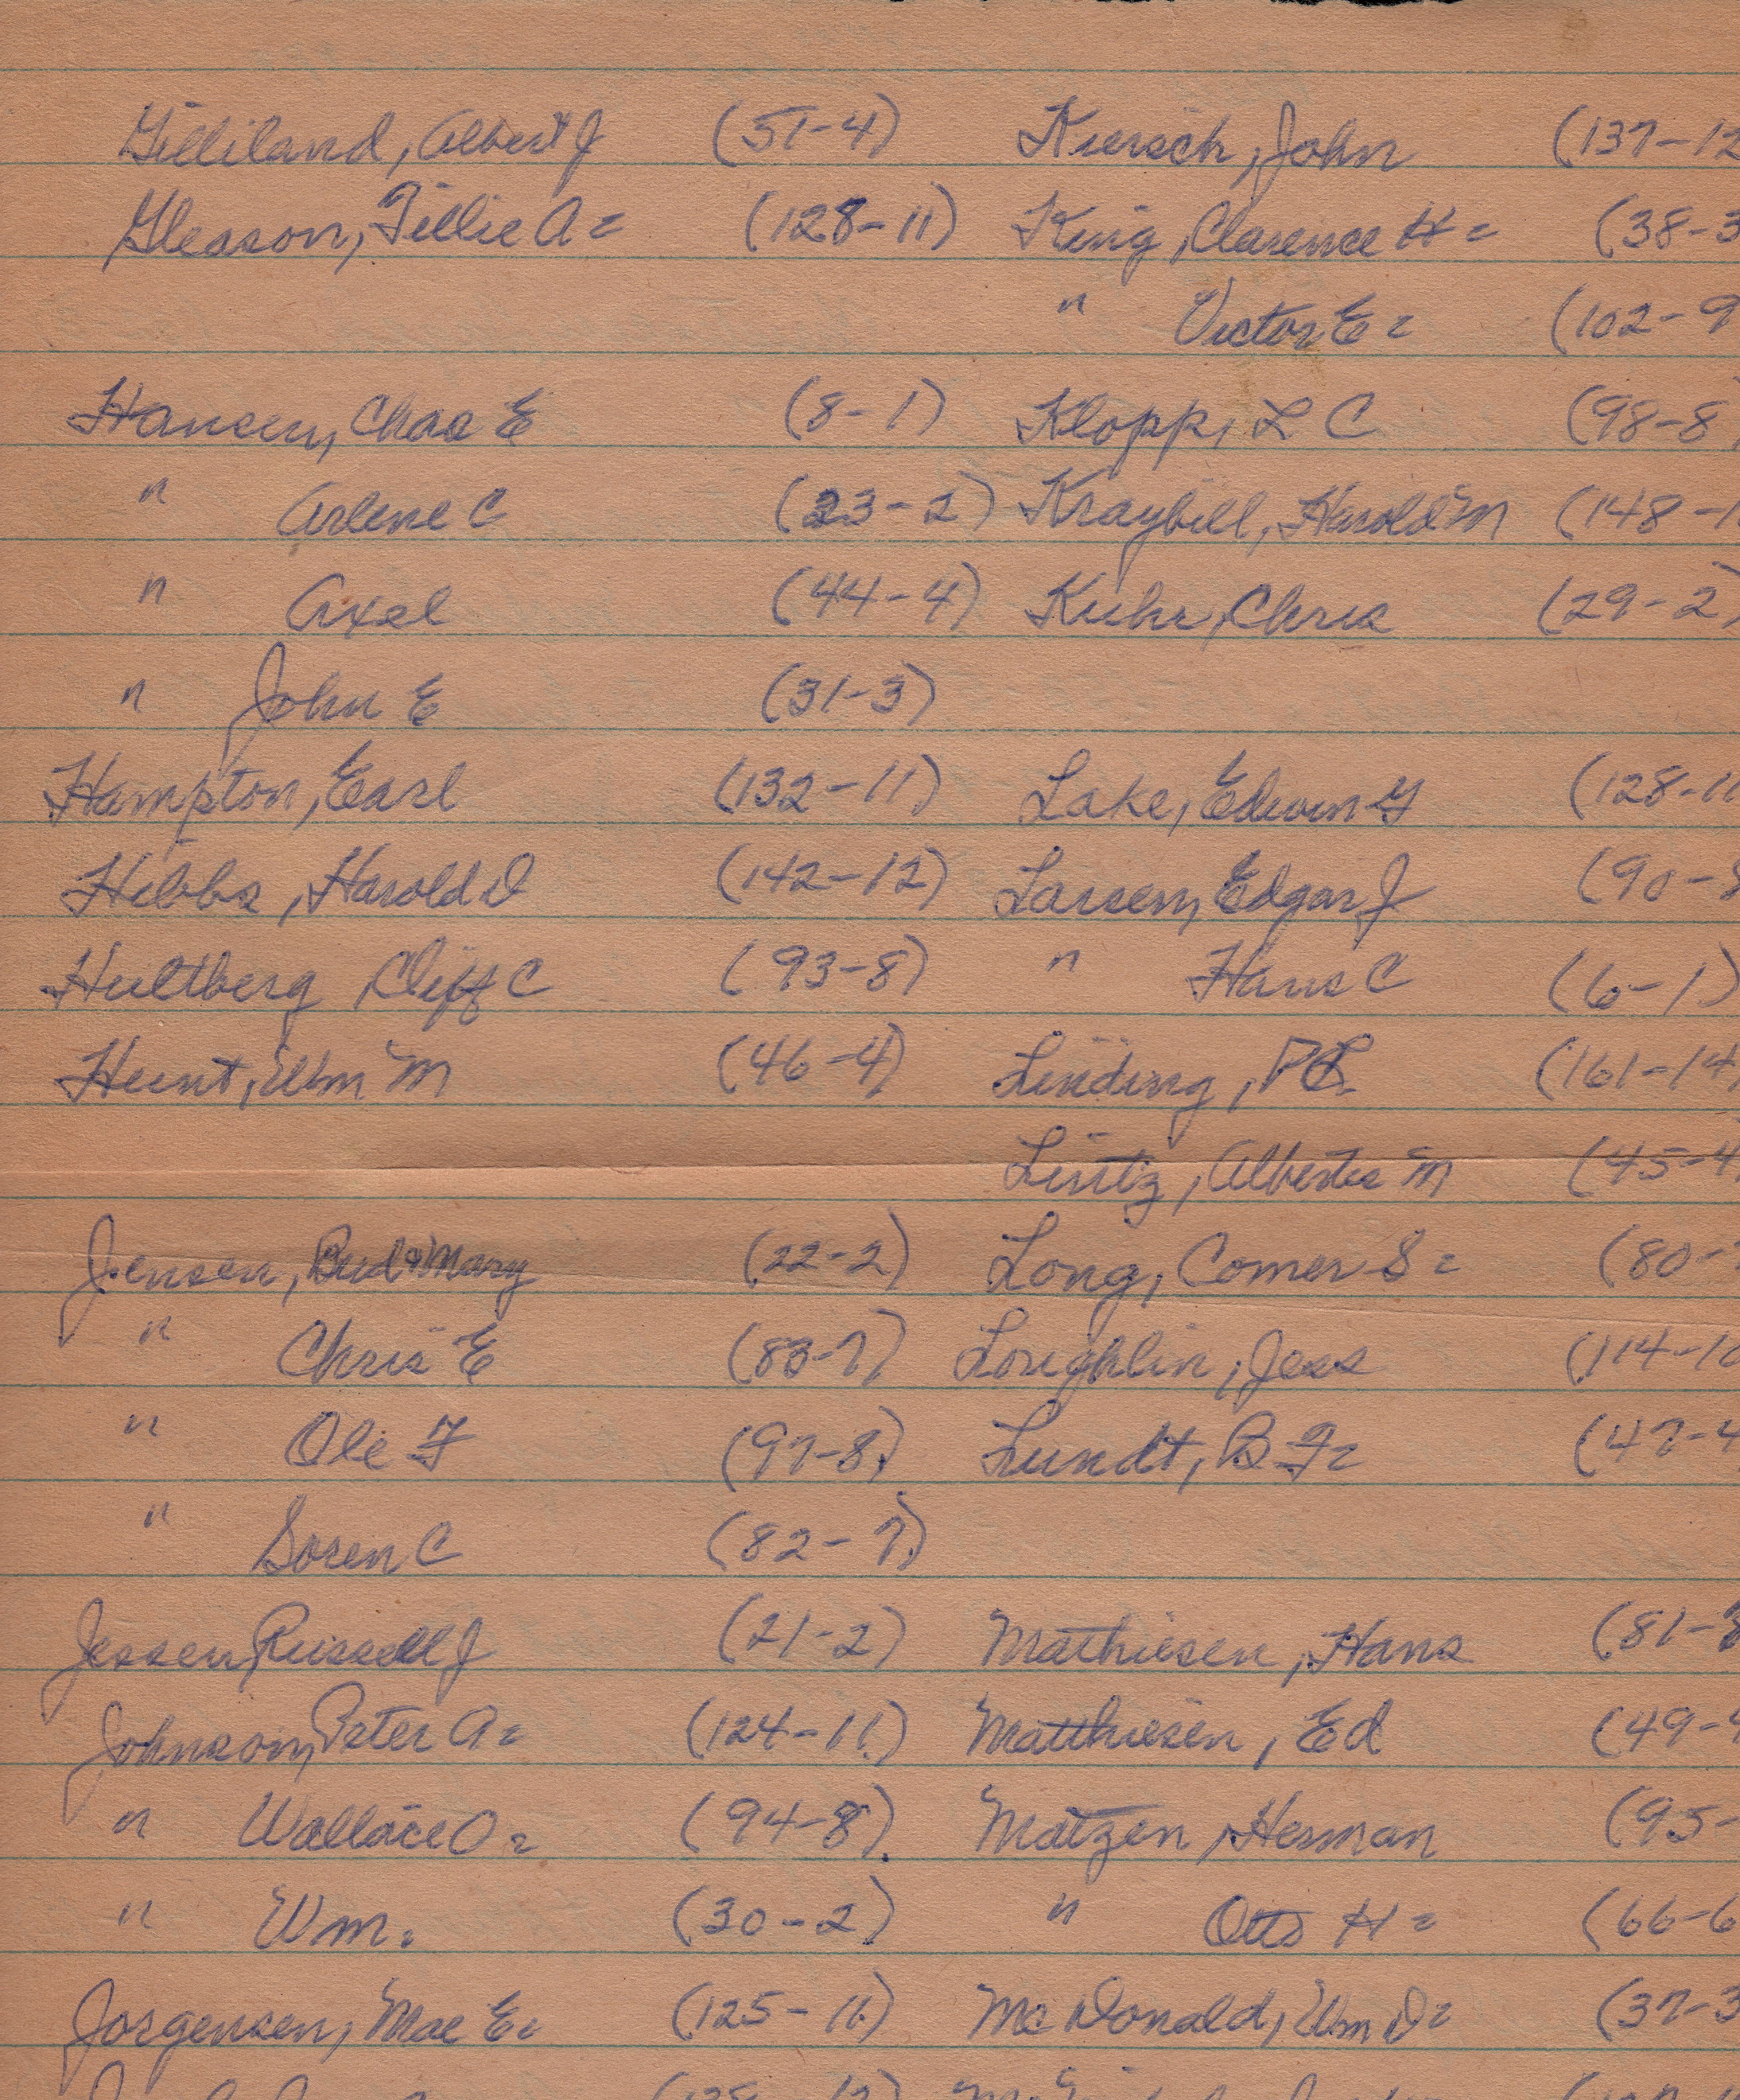 Gilliland, Albert J (51-4)
Gleason, Tillie A= (128-11)
Hansen, Chas E (8-1)
" Arlene C (23-2)
" Axel (44-4)
" John E (31-3)
Hampton, Earl (132-11)
Hibbs, Harold D (142-12)
Hultberg, Cliff C (93-8)
Hunt, Wm M (46-4)
Jensen, Bud & Mary (22-2)
" Chris E (83-7)
" Ole F (97-8)
" Soren C (82-7)
Jessen, Russell J (21-2)
Johnson, Peter A= (124-11)
" Wallace O= (94-8)
" Wm. (30-2)
Jorgensen, Mae E= (125-11)
Kiersch, John (137-12
King, Clarence H= (38-3
" Victor E= (102-9
Klopp, L C (98-8)
Kraybill, Harold M (148-1
Kuhr, Chris (29-2)
Lake, Edwin G (128-11
Larsen, Edgar J (90-8
" Hans C (6-1)
Linding, P (161-14
Lintz, Alberta M (45-4
Long, Comer S= (80-
Loughlin, Jess (114-10
Lundt, B F= (47-4
Mathiesen, Hans (81-
Matthiesen, Ed (49-4
Matzen, Herman (95-
" Otto H= (66-6
McDonald, Wm D= (37-3